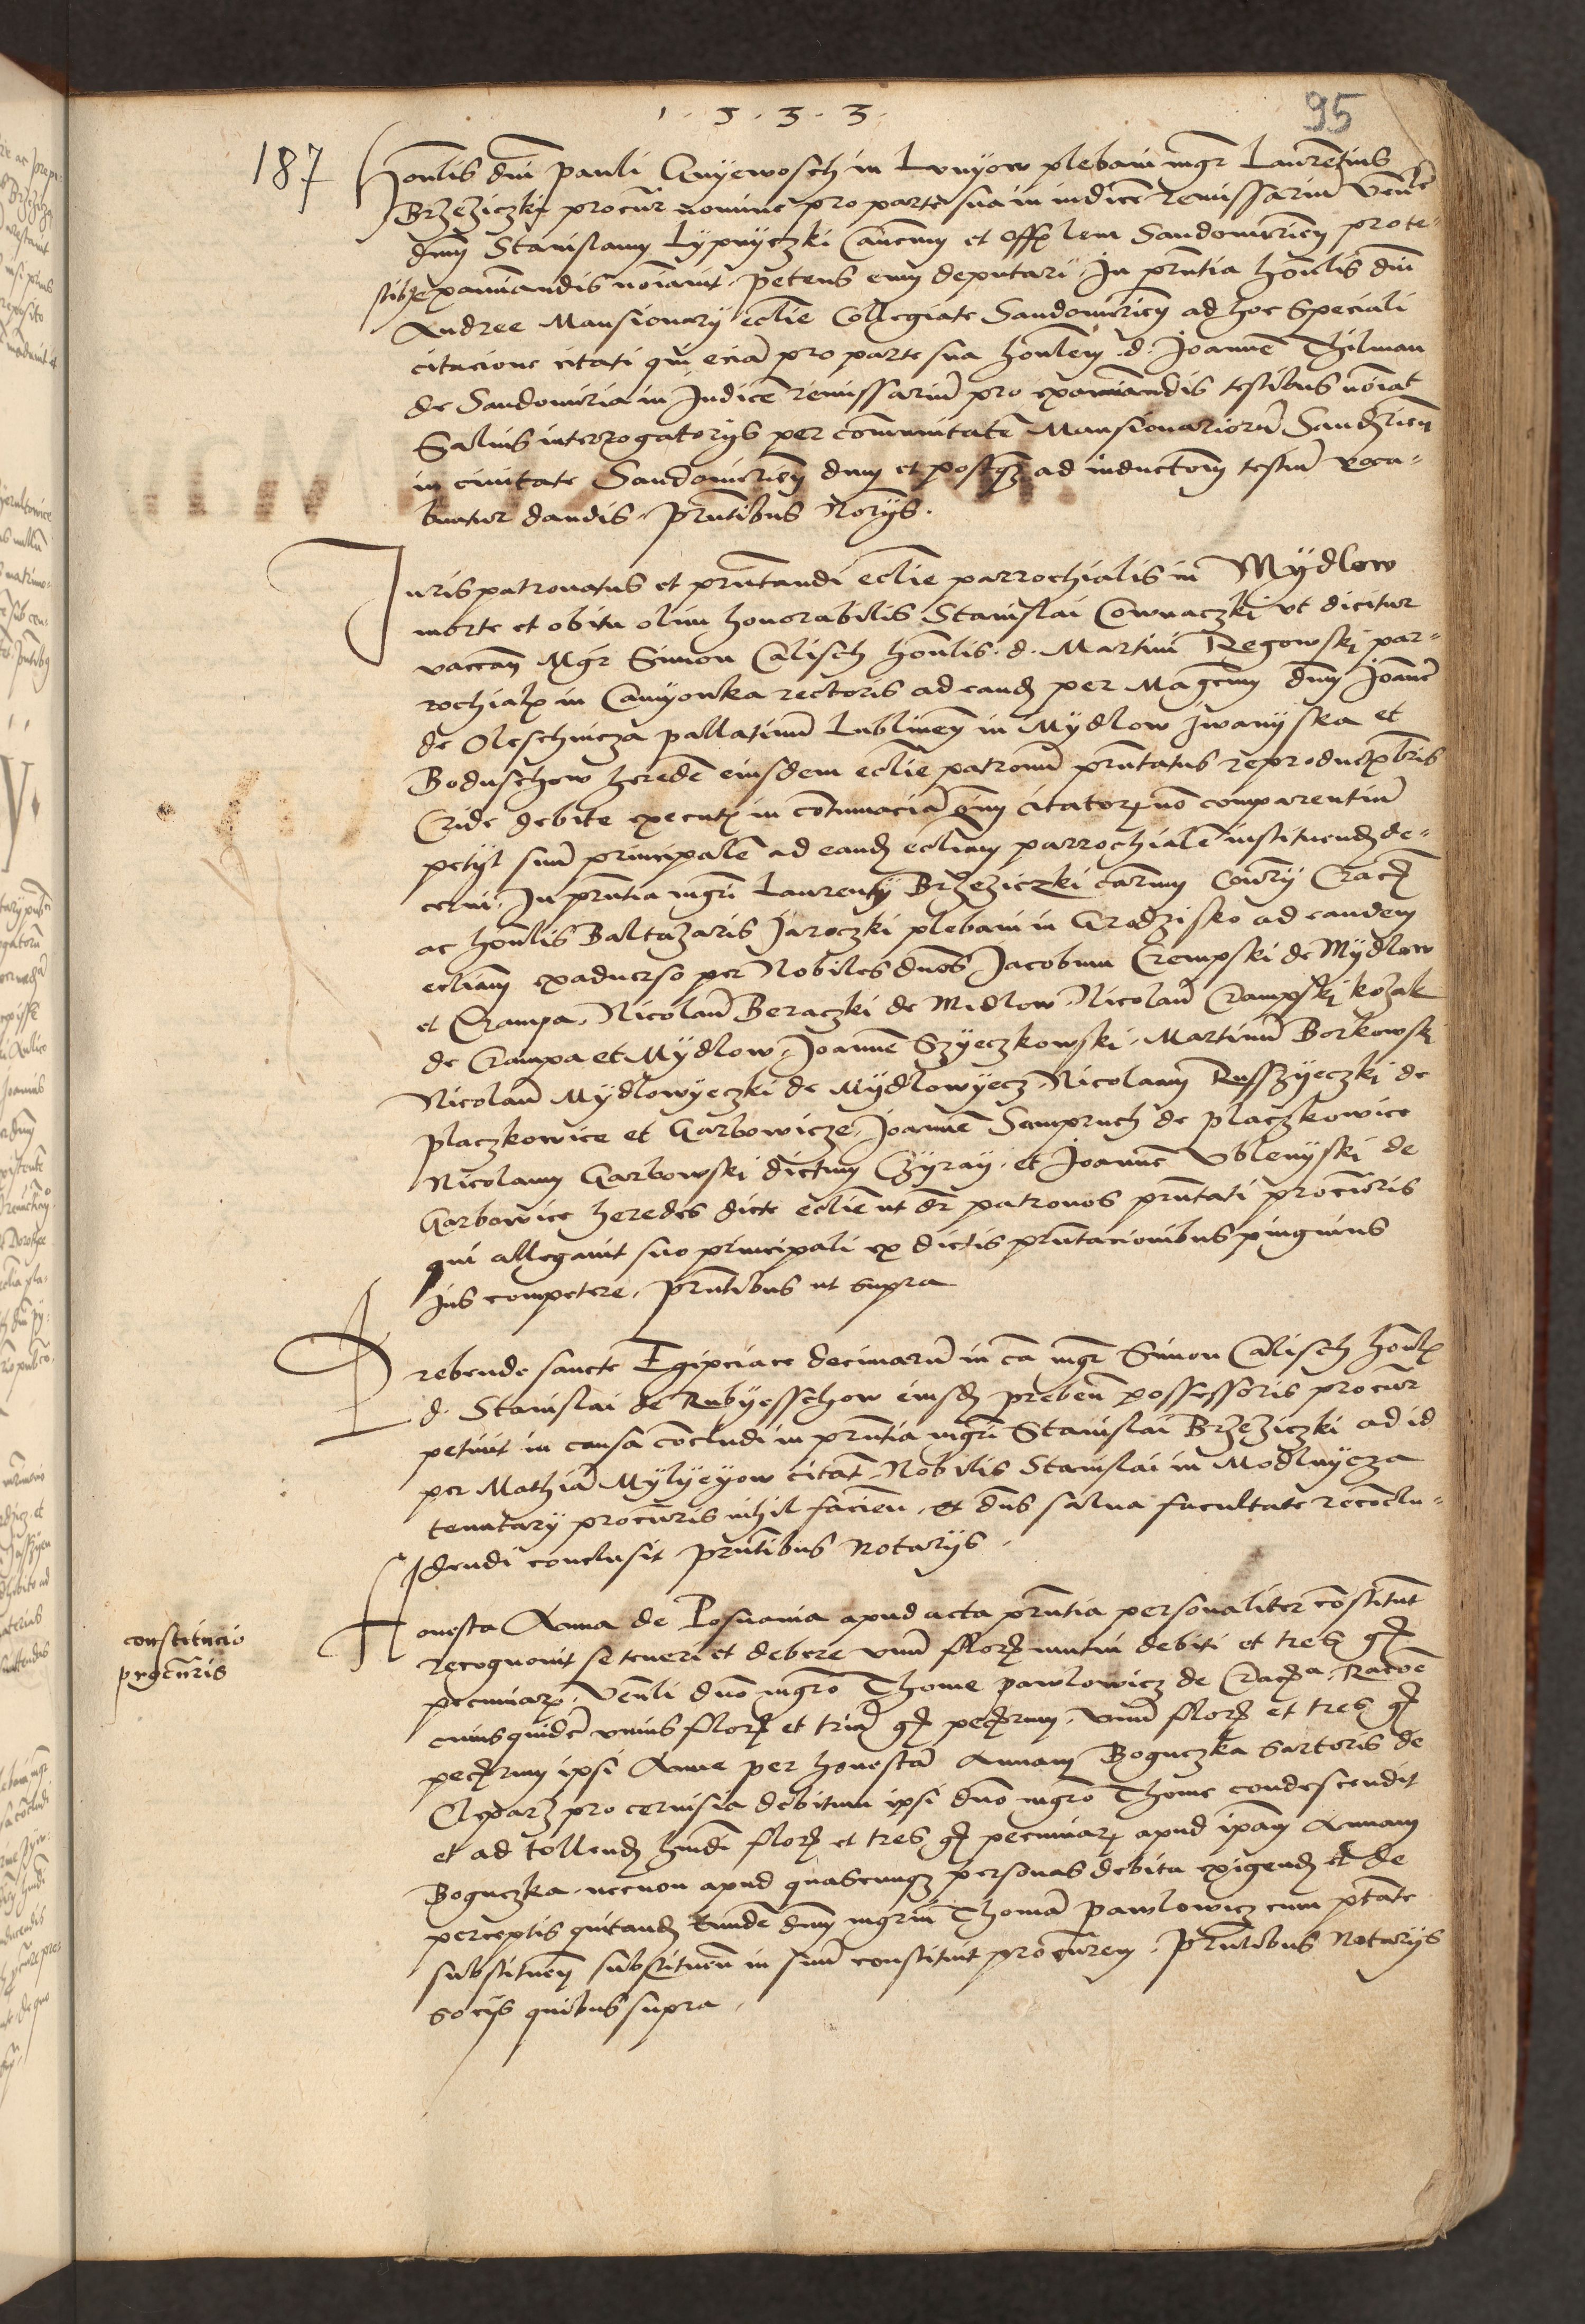 1 · 5 · 3 · 3 ·
95
187
Honlis dni Pauli Gnyewosch in Lunyow plebani mgr Laurentius
Brzeziczki procur nomine pro parte sua in iudice remissariu Vene
dnm Stanislaum Lypnyczki Cancum et offlem Sandomirien pro te-
stibus examinandis noiavit. petens eum deputari. In pntia honlis dni
Andree Mansionarii eclie Collegiate Sandomirien ad hoc speciali
citacione citati qui ecia pro parte sua honlem d. Joanne Thilman
de Sandomiria in Judice remissariu pro examinandis testibus noiat
Salvis interrogatoriis per comunitate Mansionarioru Sandrien
in civitate Sandomirien dum et postqz ad inductom testiu voca-
buntur dandis. Pntibus Noriis.
Juris patronatus et pntandi eclie parrochialis in Mydlow
morte et obitu olim honorabilis Stanislai Cownaczki ut dicitur
vacan Mgr Simon Calisch honlis. d. Martini Regowski par-
rochialis in Canyowka rectoris ad eand per Magcum dnm Joanne
de Oleschnicza pallatinu Lublinen in Mydlow Iwanyska et
Boduschow herede eiusdem eclie patronu pntatus reproductis lris
Cride debite executis in contumacia oim citator no comparentiu
petyt suu principale ad eand ecliam parrochiale instituend de-
cerni. In pntia mgri Laurentii Brzeziczki carmi Consry Crac
ac honlis Baltazaris Jaroczki plebani in Grodzisko ad eandem
ecliam exadverso per Nobiles dnos Jacobum Crempski de Mydlow
et Crampa. Nicolau Beraczki de Midlow. Nicolau Crampski Kozak
de Crampa et Mydlow. Joanne Szyeczkowski. Martinu Borkowski
Nicolau Mydlowyeczki de Mydlowyecz. Nicolaum Russzyeczki de
Placzkowice et Garbowicze. Joanne Sampruch de placzkowice
Nicolaum Garbowski dictum Czyray. et Joanne Ublenyski de
Garbowice heredes dicte eclie ut dr patronos pntati procuris
qui allegavit suo principali ex dictis pntacionibus pinguius
Jus competere. Pntibus ut supra
Prebende sancte Egipciace decimaru in ca mgr Simon Calisch honlis
d. Stanislai de Rubyesschow eiusd preben possessoris procur
petiuit in causa concludi in pntia mgri Stanislai Brzeziczki ad id
per Mathia Mylyeyow citat. Nobilis Stanislai in Modlnycza
tenutarii procuris nihil facien. et dns salva facultate reconclu-
dendi conclusit pntibus Notariis.
constitucio
procuris
Honesta Anna de Posnania apud acta pntia personaliter constitut
recognovit se teneri et debere unu flor mutui debiti et tres gr
pecuniar. Venli dno mgro Thome Pawlowicz de Crac. Racoe
cuiusquide unius flor et triu gr pecrum. unu flor et tres gr
pecrum ipsi Anne per honesta Annam Boguczka sartoris de
Cleparz pro cervisia debitum ipsi dno mgro Thome condescendit
et ad tollend hmdi flor et tres gr pecuniar apud ipam Annam
Boguczka. necnon apud quascunqz personas debita exigend et de
perceptis quitand Eunde dnm mgrum Thoma Pawlowicz cum ptate
substituen substituen in suu constituit procurem. Pntibus Notariis
sociis quibus supra.